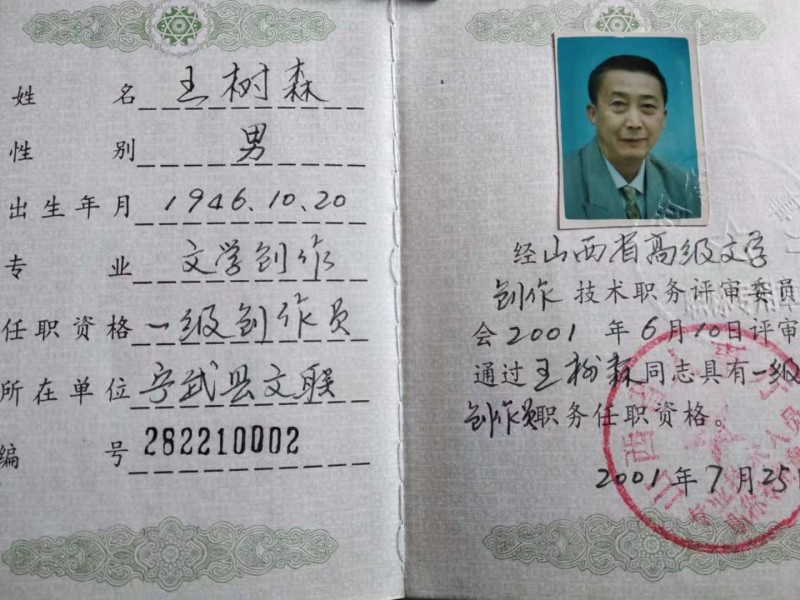 姓名 王树森
性别 男
出生年月 1946.10.20
专业 文学创作
任职资格 一级创作员
所在单位 宁武县文联
编号 282210002
经山西省高级文学
创作 技术职务评审委员
会2001 年6月10日评审
通过王树森同志具有一级
创作员职务任职资格。
2001年7月25日